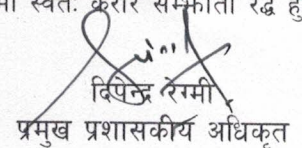 स्वतः करार सम्झौता रद्ध हु
दिपेन्द्र रेग्मी
प्रमुख प्रशासकीय अधिकृत